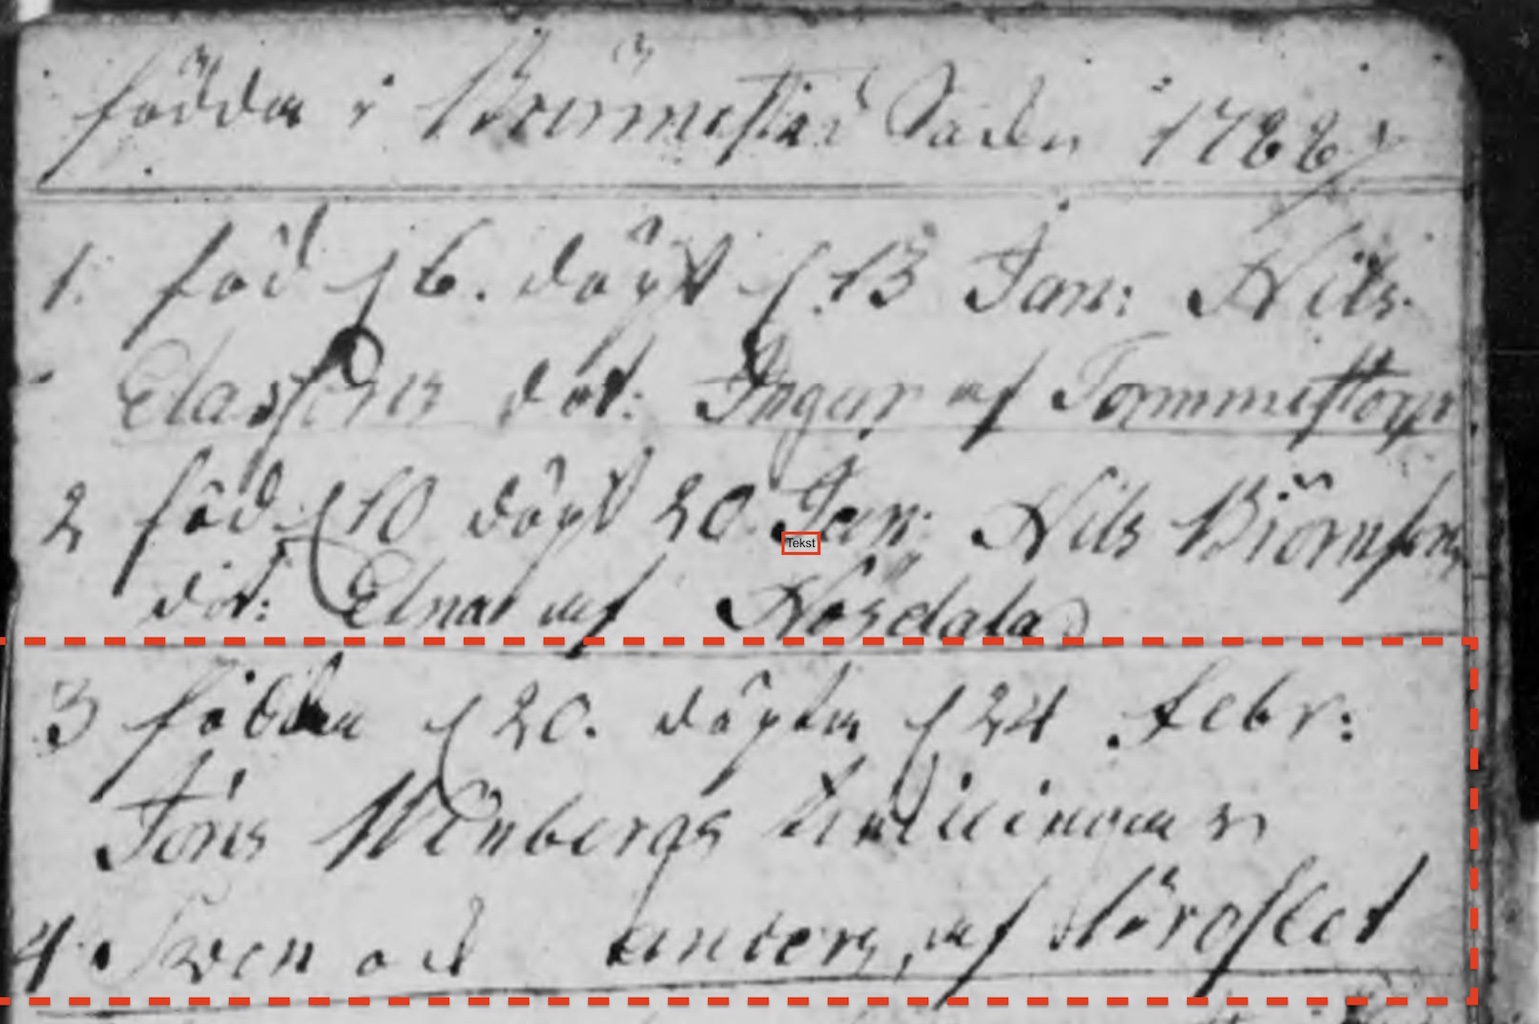 födda i Brönnestad Sochn 1788
1. föd d 6. döpt d. 13 Jan: Nils
Clasſons dot: Ingar af Tormmeſtorp
2 föd d 10 döpt 20 Jan: Nils Biörnſons
dot: Elna af Hösdala
Tekst
3 födda d 20. döpta d 24 febr:
Jöns Winbergs tvillingar
4. Sven och anders, af Störoſlet